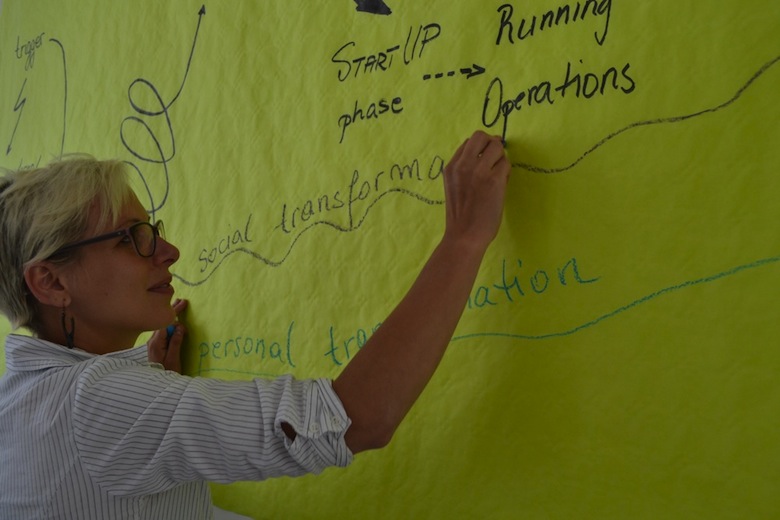 trigger
StartUP
phase
Running
Operations
social transforma
personal tra
ation